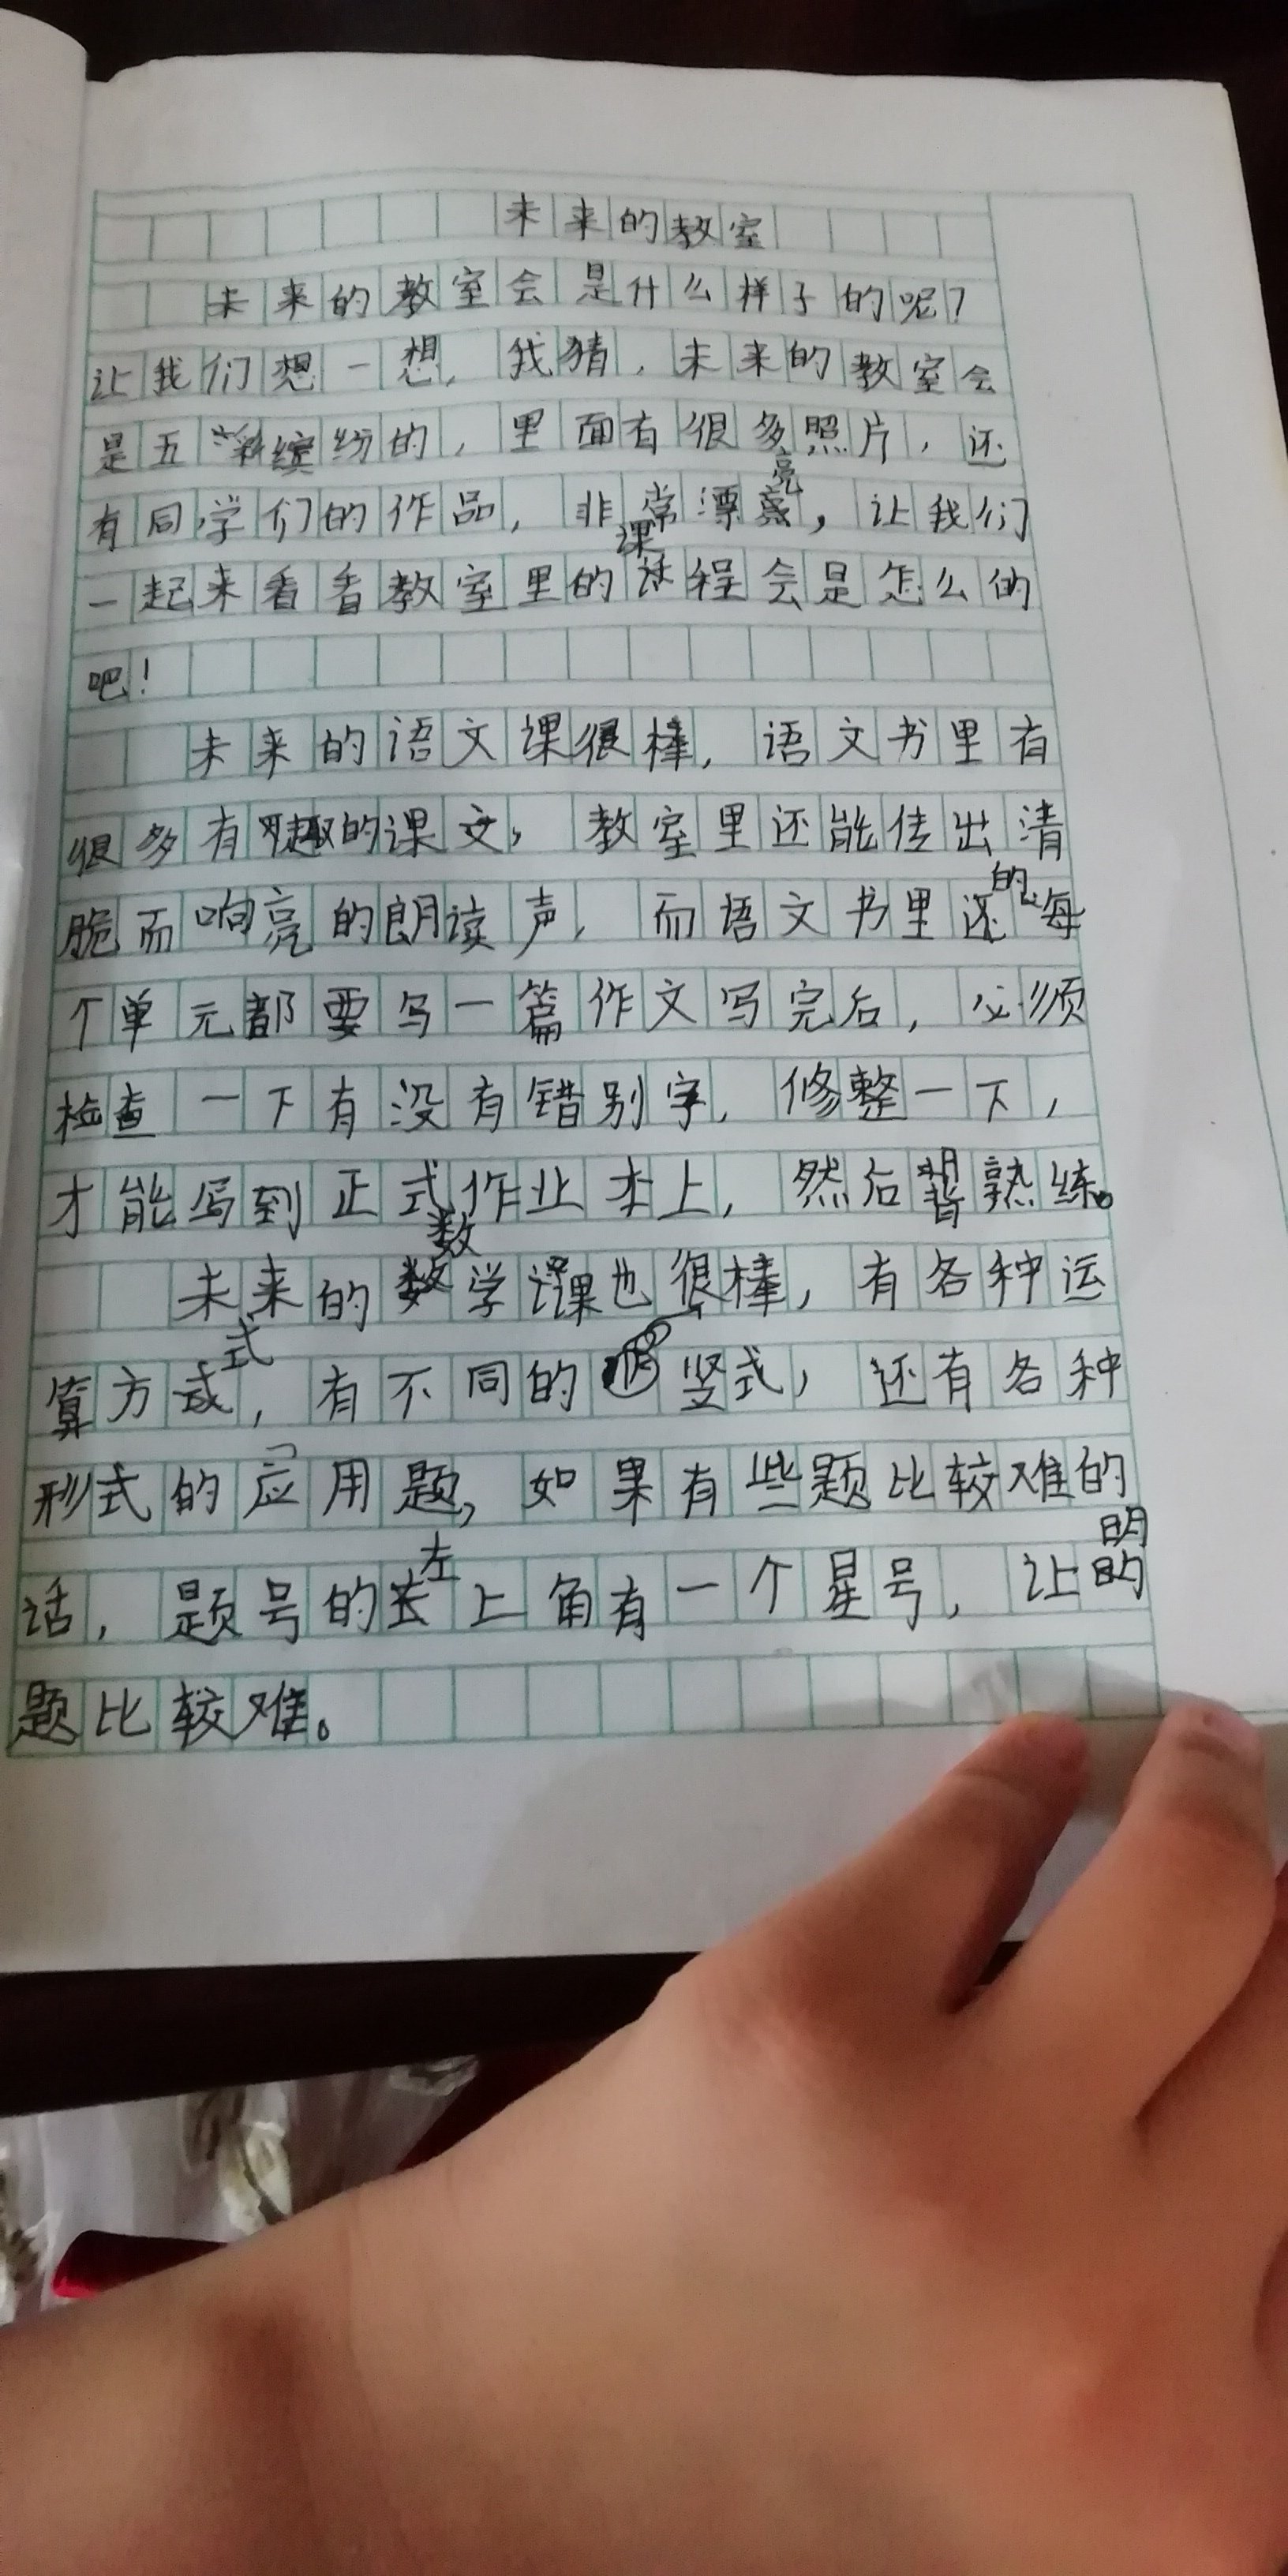 未来的教室
未来的教室会是什么样子的呢？
让我们想一想，我猜，未来的教室会
是五彩缤纷的，里面有很多照片，还
有同学们的作品，非常漂亮，让我们
一起来看看教室里的课程会是怎么的
吧！
未来的语文课很棒，语文书里有
很多有趣的课文，教室里还能传出清
脆而响亮的朗读声，而语文书里还的每
个单元都要写一篇作文写完后，必须
检查一下有没有错别字，修整一下，
才能写到正式作业本上，然后背熟练。
未来的数学课也很棒，有各种运
算方式，有不同的竖式，还有各种
形式的应用题，如果有些题比较难的
话，题号的左上角有一个星号，让明
题比较难。